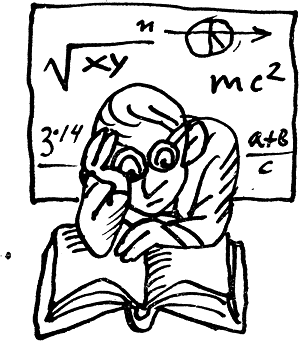 n
√xy
mc²
3.14
a+b
c